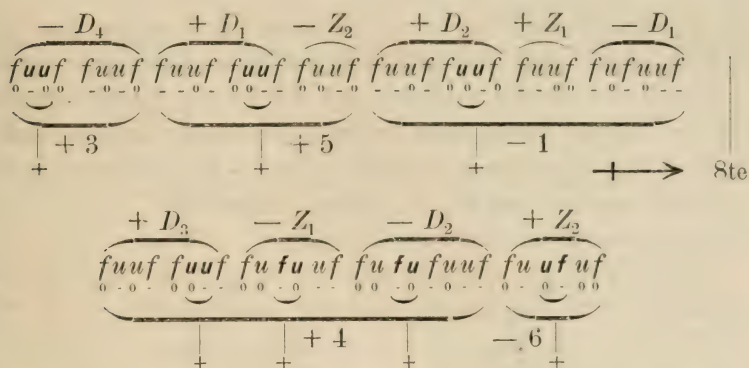 − D₄ + D₁ − Z₂ + D₂ + Z₁ − D₁
fuuf fuuf fuuf fuuf fuuf fuuf fuuf fuuf fufuuf
+ 3 + 5 − 1
+ + + + 8te
+ D₃ − Z₁ − D₂ + Z₂
fuuf fuuf fu fu uf fu fu fuuf fu uf uf
+ 4 − 6
+ + + +